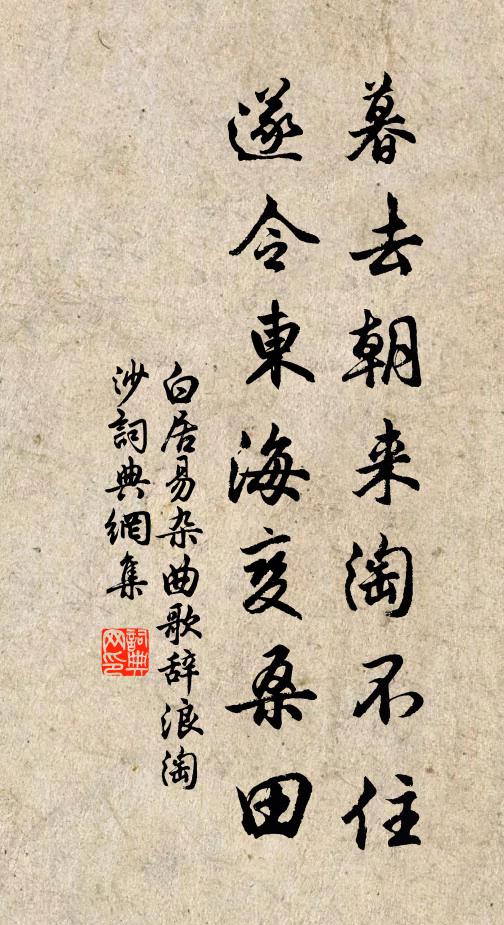 暮去朝来淘不住
遂令東海变桑田
白居易杂曲歌辞浪淘
沙詞典網集
詞典
网印